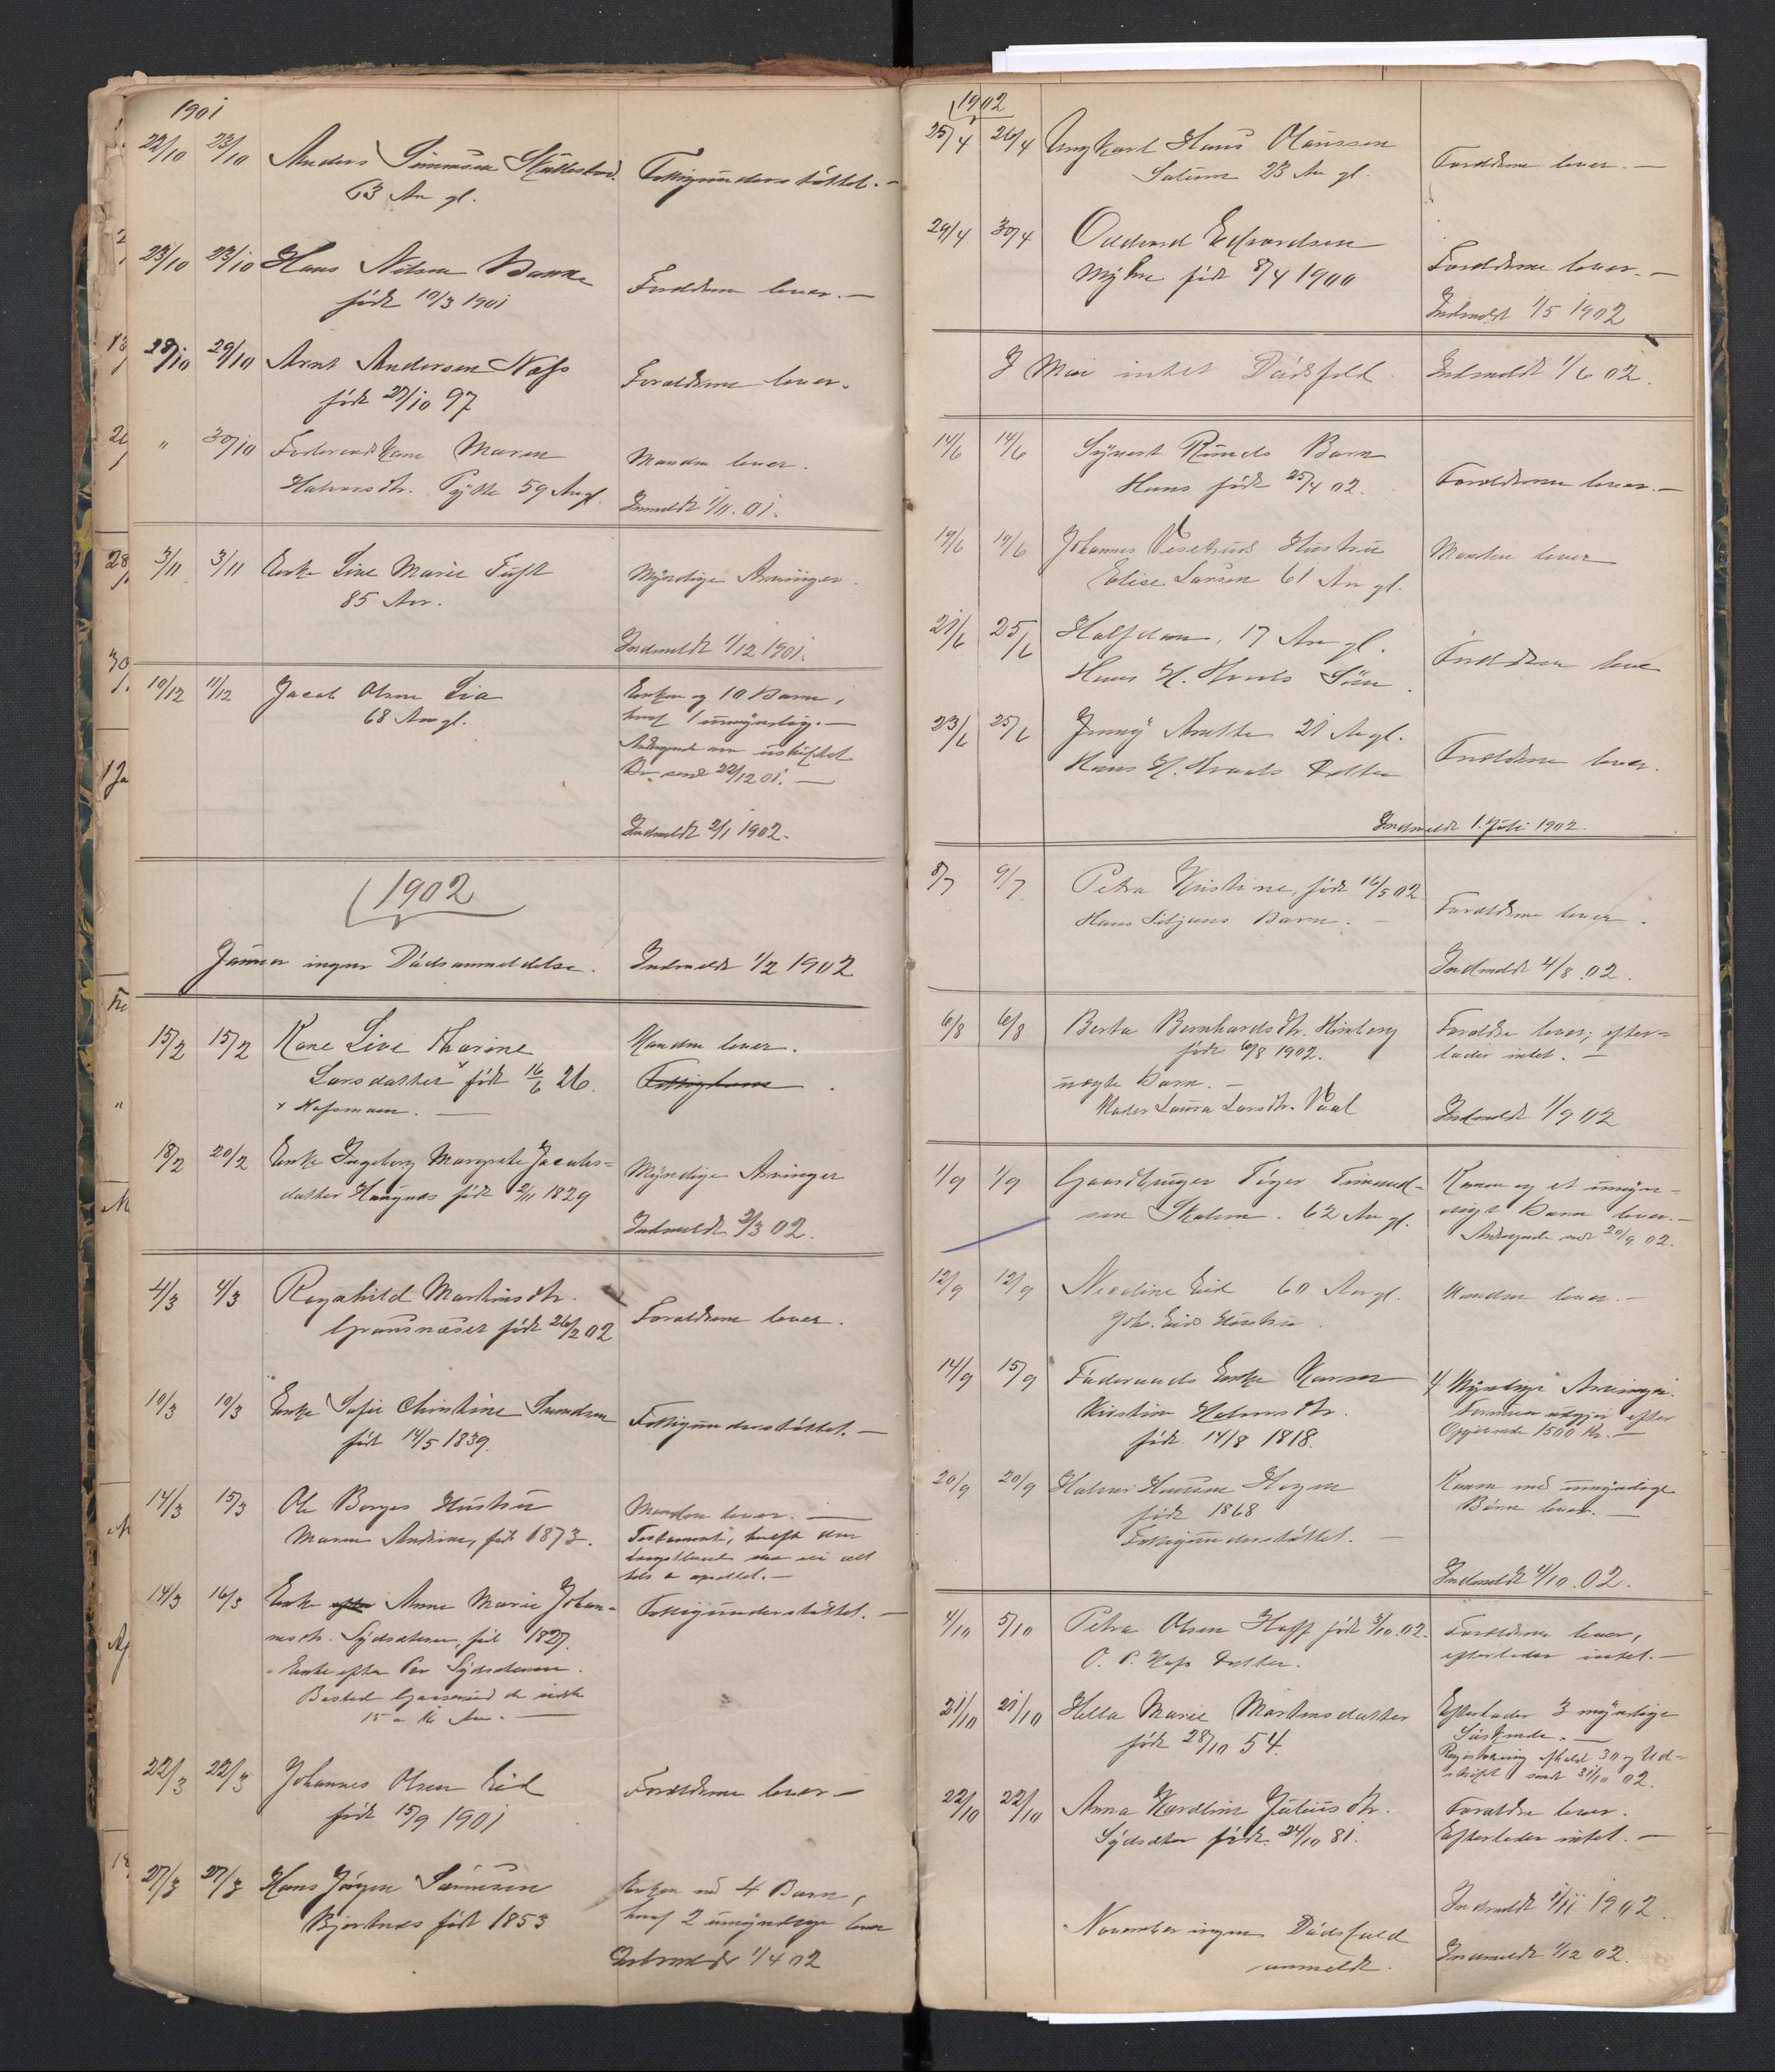 1901
22/10 23/10 Anders Simensen
63 Aar gl. Fattigunderstøttet. —
23/10 23/10 Hans Nilsen Bakke
født 10/3 1901 Forældrene lever. —
28/10 29/10 Arnt Andersen Næss
født 27/10 97 Forældrene lever.
" 30/10 Føderaadskone Maren
Halvorsdtr. 59 Aar gl. Manden lever.
Inmeldt 1/11. 01.
3/11 3/11 Enke Live Marie
85 Aar. Myndige Arvinger.
Indmeldt 1/12 1901.
10/12 11/12 Jacob Olsen Lia
68 Aar gl. Enken og 10 Barn,
hvoraf 1 umyndig. —
Andragende om uskiftet
Bo sendt 22/12 01. —
Indmeldt 2/1 1902.
1902
Januar ingen Dødsanmeldelse. Indmeldt 1/2 1902
15/2 15/2 Kone Live Karine
Larsdatter x født 16/6 26.
x Hafsmoen. —
Manden lever.
18/2 20/2 Enke Ingeborg Margrete Jacobs-
datter Haugnæs født 2/11 1829
Myndige Arvinger
Indmeldt 2/3 02.
4/3 4/3 Ragnhild Martinsdtr.
Grønsnæset født 26/2 02 Forældrene lever.
10/3 10/3 Enke Sofie Christine
født 14/5 1839. Fattigunderstøttet. —
14/3 15/3 Ole Borges Hustru
Maren Andrine, født 1873.
Manden lever. —
Testament, hvorefter den
længstlevende
14/3 16/3 Enke efter Anne Marie Johan-
nesdtr. Sydsæteren, født 1827.
Enke efter Per Sydsæteren.
Bosted de sidste
15 a 16 Aar. —
Fattigunderstøttet. —
22/3 22/3 Johannes Olsen Eid
født 15/9 1901 Forældrene lever —
27/3 27/3 Hans Jørgen
Bjertnæs født 1853
Enken med 4 Barn,
hvoraf 2 umyndige lever
Indmeldt 1/4 02
1902
25/4 26/4 Ungkarl Hans Olaussen
23 Aar gl. Forældrene lever. —
29/4 30/4 Oddvard Edvardsen
Myhre født 8/4 1900 Forældrene lever. —
Indmeldt 1/5 1902
I Mai intet Dødsfald. Indmeldt 1/6 02.
14/6 14/6 Syvert Ruuds Barn
Hans født 25/4 02. Forældrene lever. —
19/6 19/6 Johannes Hustru
Elise Larsen 61 Aar gl. Manden lever
21/6 25/6 Halfdan, 17 Aar gl.
Hans H. Søn. Forældrene lever
23/6 25/6 Jenny Anette 21 Aar gl.
Hans H. Datter Forældrene lever.
Indmeldt 1. Juli 1902.
8/7 9/7 Petra Kristine, født 16/5 02
Hans Siljans Barn. — Forældrene lever.
Indmeldt 4/8. 02.
6/8 6/8 Berta Bernhardsdtr.
født 6/8 1902.
uægte Barn. —
Moder Laura Larsdtr.
Forældre lever; efter-
lader intet. —
Indmeldt 1/9 02
1/9 1/9 Gaardbruger Simund-
sen 62 Aar gl.
Konen og et umyn-
digt Barn lever. —
Andragende sendt 20/9 02.
12/9 12/9 Eid 60 Aar gl.
Joh. Eids Hustru. Manden lever. —
14/9 15/9 Føderaads Enke Karen
Kristine Halvorsdtr.
født 14/8 1818.
4 Myndige Arvinger.
efter
Opgivende 1500 Kr. —
20/9 20/9 Halvor Hansen
født 1868
Fattigunderstøttet. —
Konen med umyndige
Børn lever. —
Indmeldt 4/10. 02.
4/10 5/10 Petra Olsen Hoff født 3/10. 02.
O. P. Hofs Datter.
Forældrene lever,
efterlader intet. —
21/10 21/10 Hella Marie Martinsdatter
født 28/10 54.
Efterlader 3 myndige
Søskende. —
Registrering afholdt 30 og Ud-
skrift sendt 31/10 02.
22/10 22/10 Anna Karoline Juliusdtr.
Sydsæter født 24/10 81.
Forældre lever.
Efterlader intet. —
Indmeldt 1/11 1902.
November ingen Dødsfald
anmeldt. Indmeldt 1/12 02.